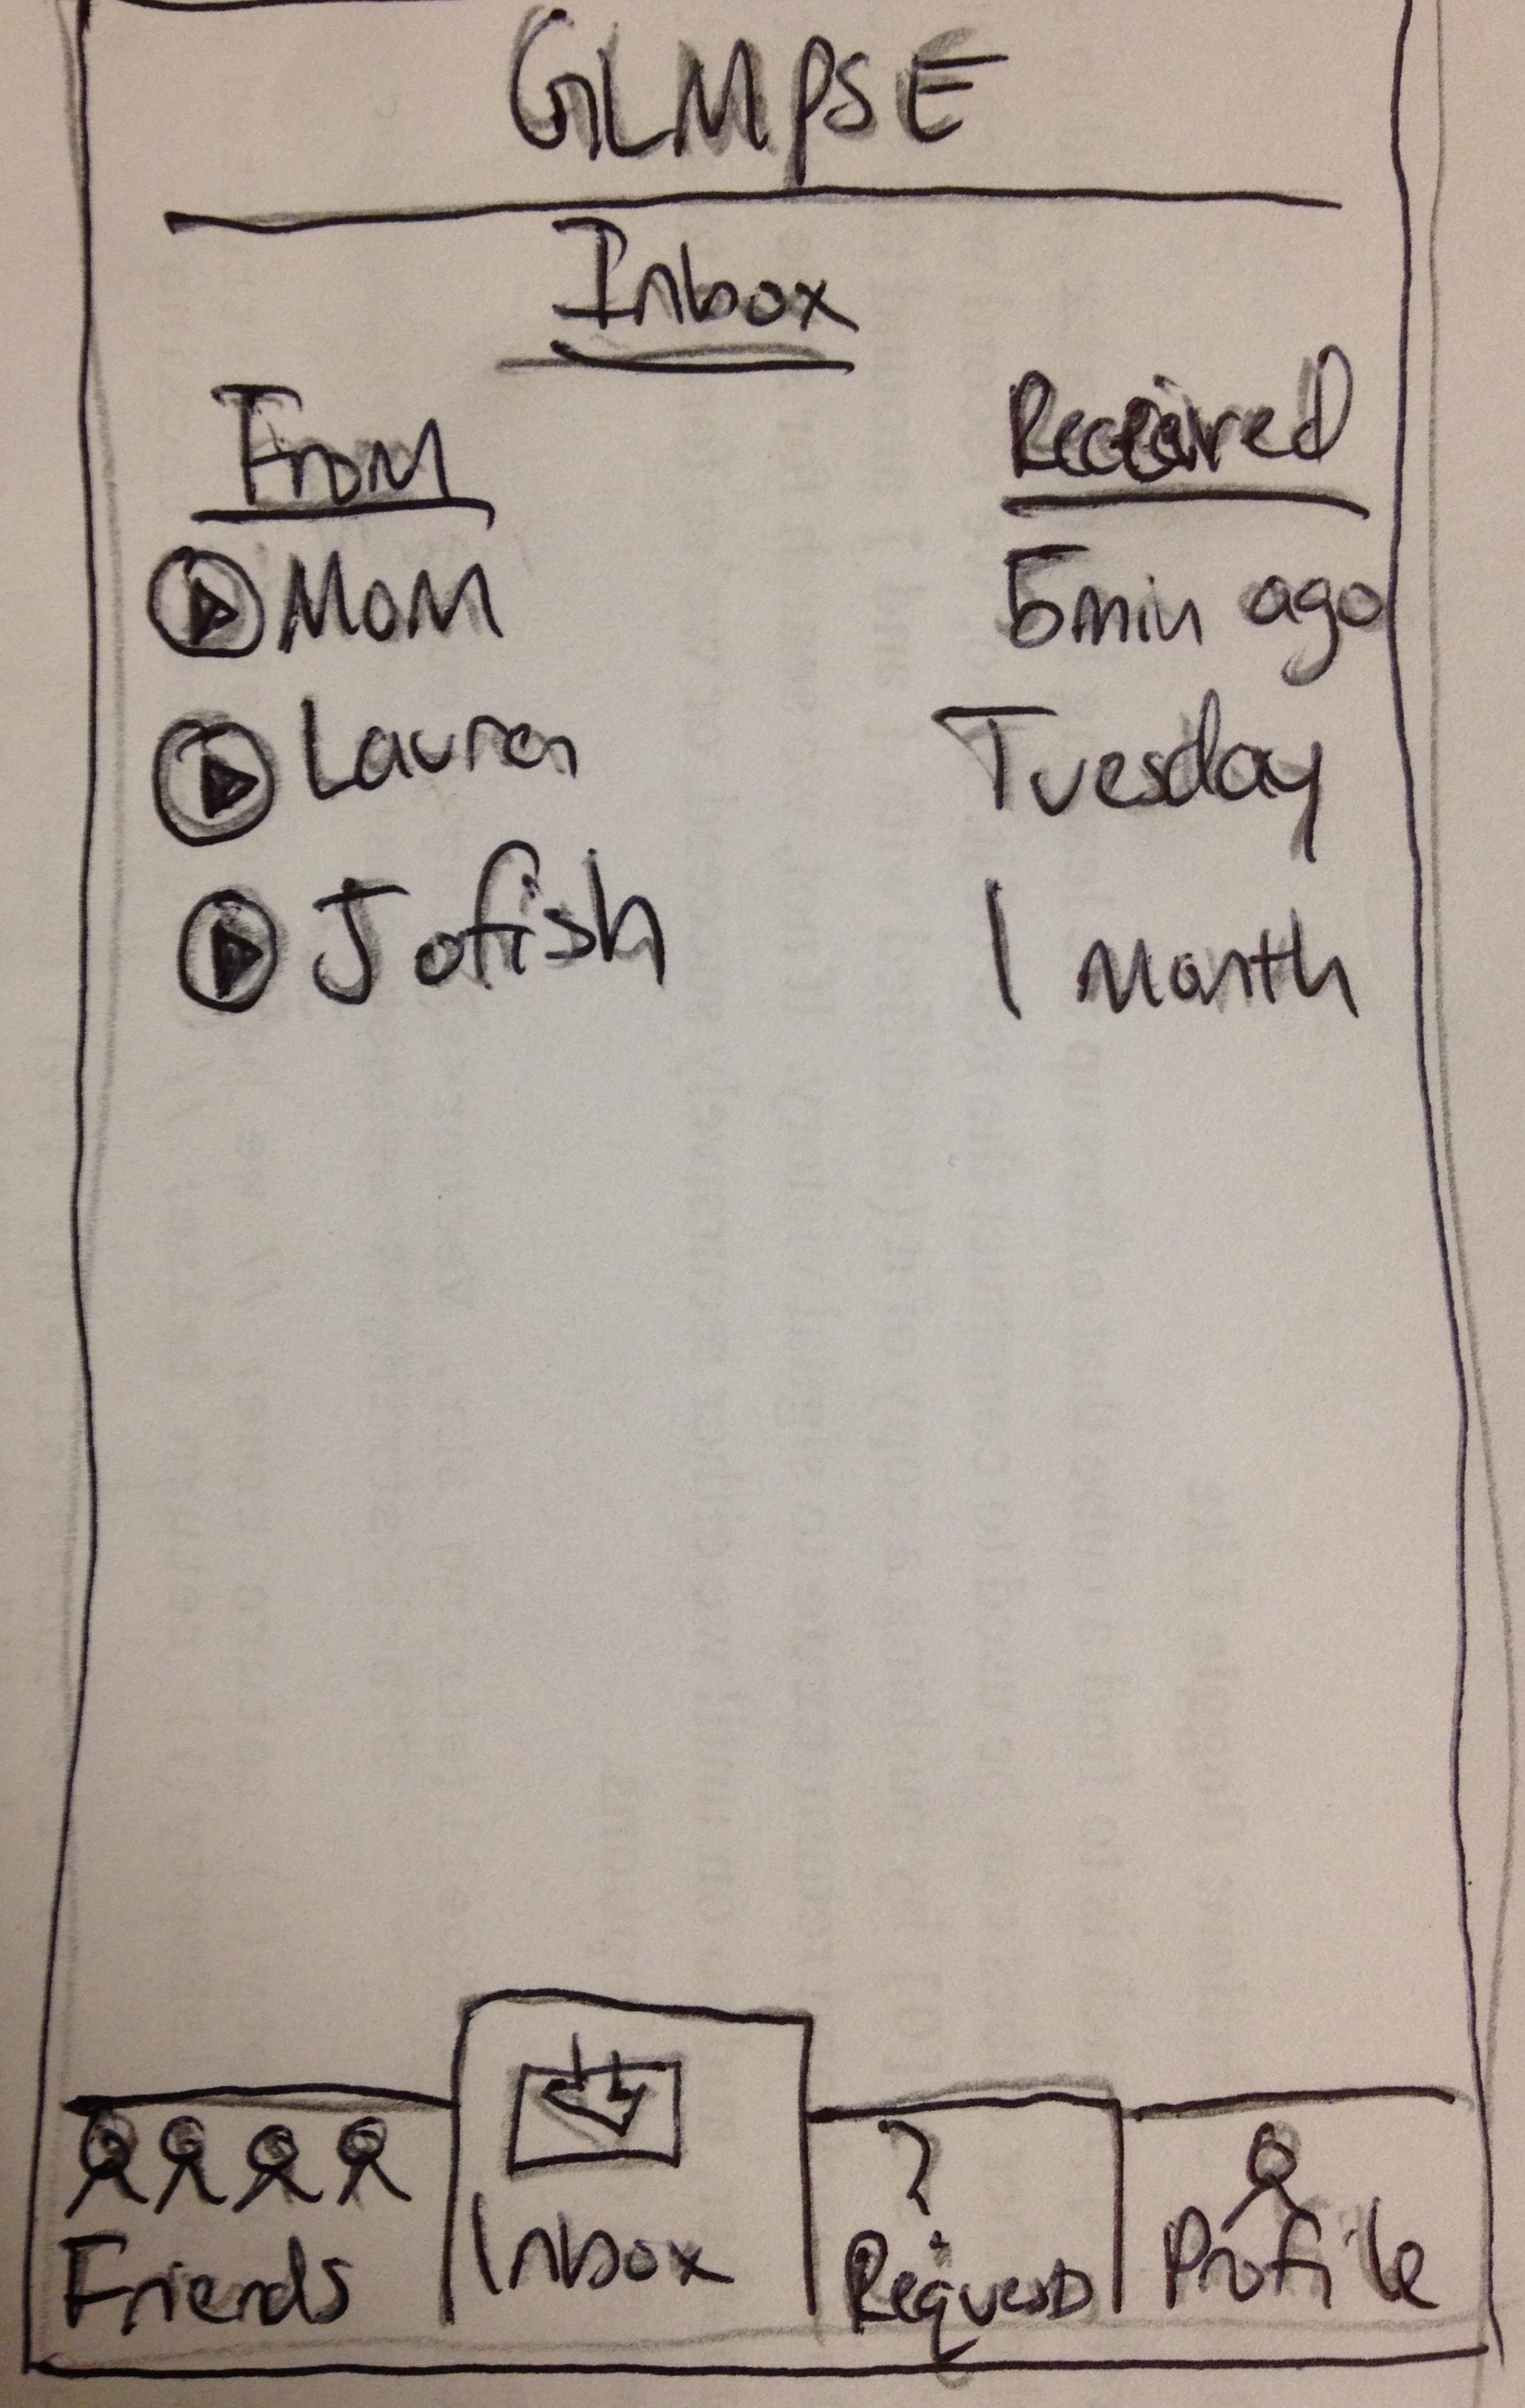 GLMPSE
Inbox
From Received
Mom 5min ago
Lauren Tuesday
Jofish 1 Month
?
Friends Inbox Requests Profile